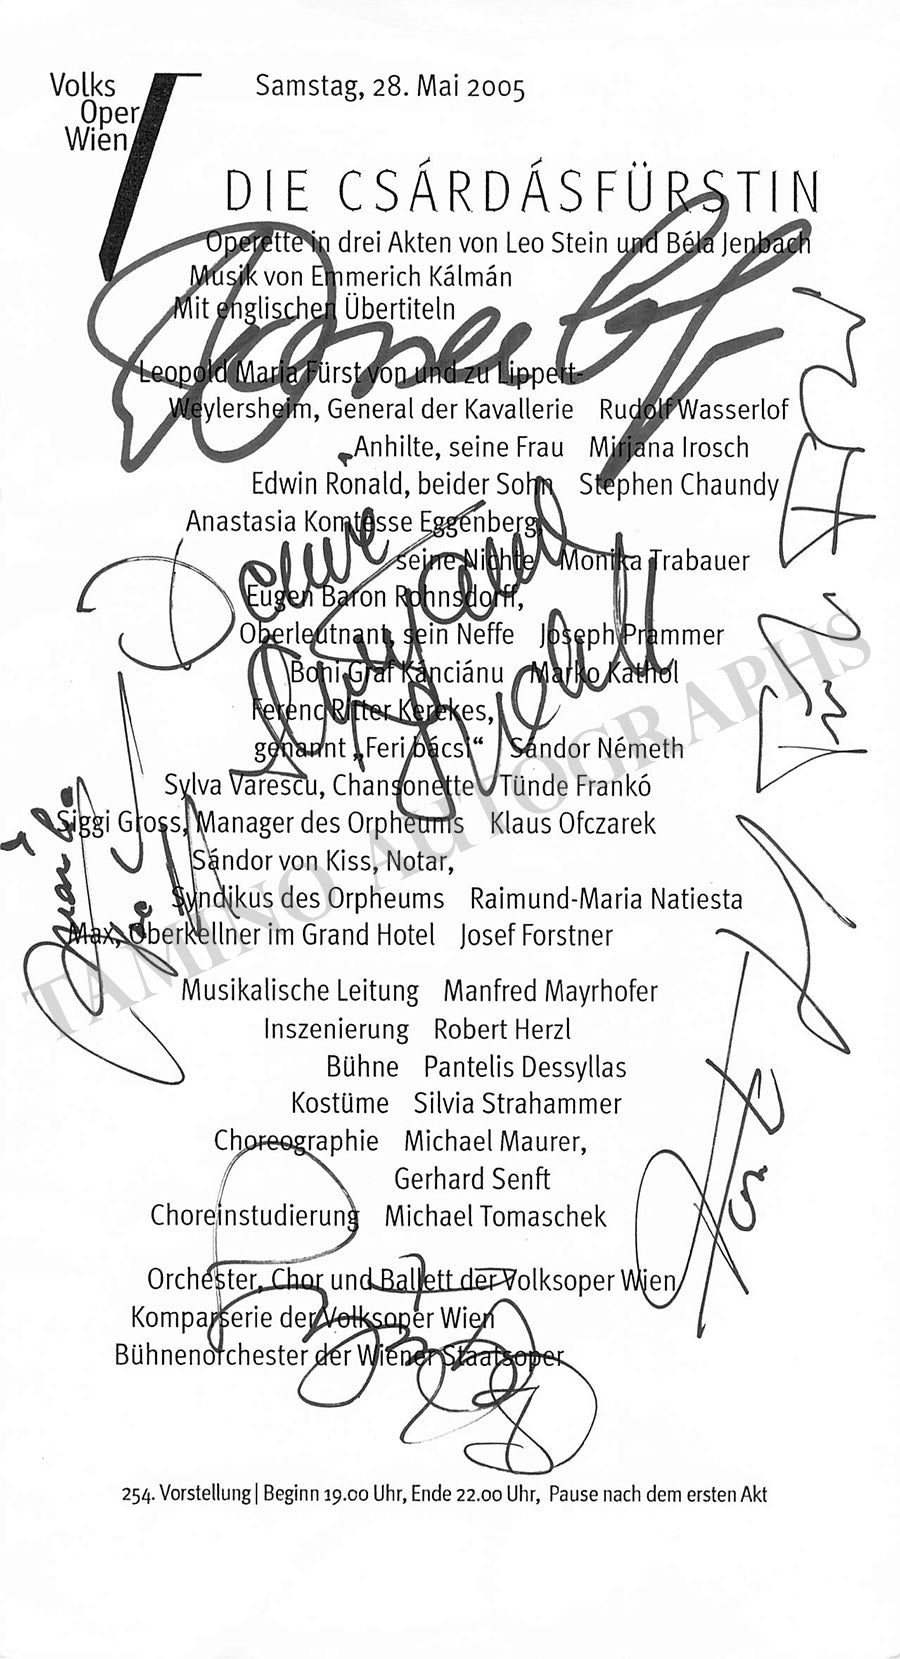 Volks
Oper
Wien
Samstag, 28. Mai 2005
DIE CSÁRDÁSFÜRSTIN
Operette in drei Akten von Leo Stein und Béla Jenbach
Musik von Emmerich Kálmán
Mit englischen Übertiteln
Leopold Maria Fürst von und zu Lippert-
Weylersheim, General der Kavallerie Rudolf Wasserlof
Anhilte, seine Frau Mirjana Irosch
Edwin Ronald, beider Sohn Stephen Chaundy
Anastasia Komtesse Eggenberg,
seine Nichte Monika Trabauer
Eugen Baron Rohnsdorff,
Oberleutnant, sein Neffe Joseph Prammer
Boni Graf Kánciánu Marko Kathol
Ferenc Ritter Kerekes,
genannt „Feri bácsi“ Sándor Németh
Sylva Varescu, Chansonette Tünde Frankó
Siggi Gross, Manager des Orpheums Klaus Ofczarek
Sándor von Kiss, Notar,
Syndikus des Orpheums Raimund-Maria Natiesta
Max, Oberkellner im Grand Hotel Josef Forstner
Musikalische Leitung Manfred Mayrhofer
Inszenierung Robert Herzl
Bühne Pantelis Dessyllas
Kostüme Silvia Strahammer
Choreographie Michael Maurer,
Gerhard Senft
Choreinstudierung Michael Tomaschek
Orchester, Chor und Ballett der Volksoper Wien
Komparserie der Volksoper Wien
Bühnenorchester der Wiener Staatsoper
254. Vorstellung | Beginn 19.00 Uhr, Ende 22.00 Uhr, Pause nach dem ersten Akt
TAMINO AUTOGRAPHS